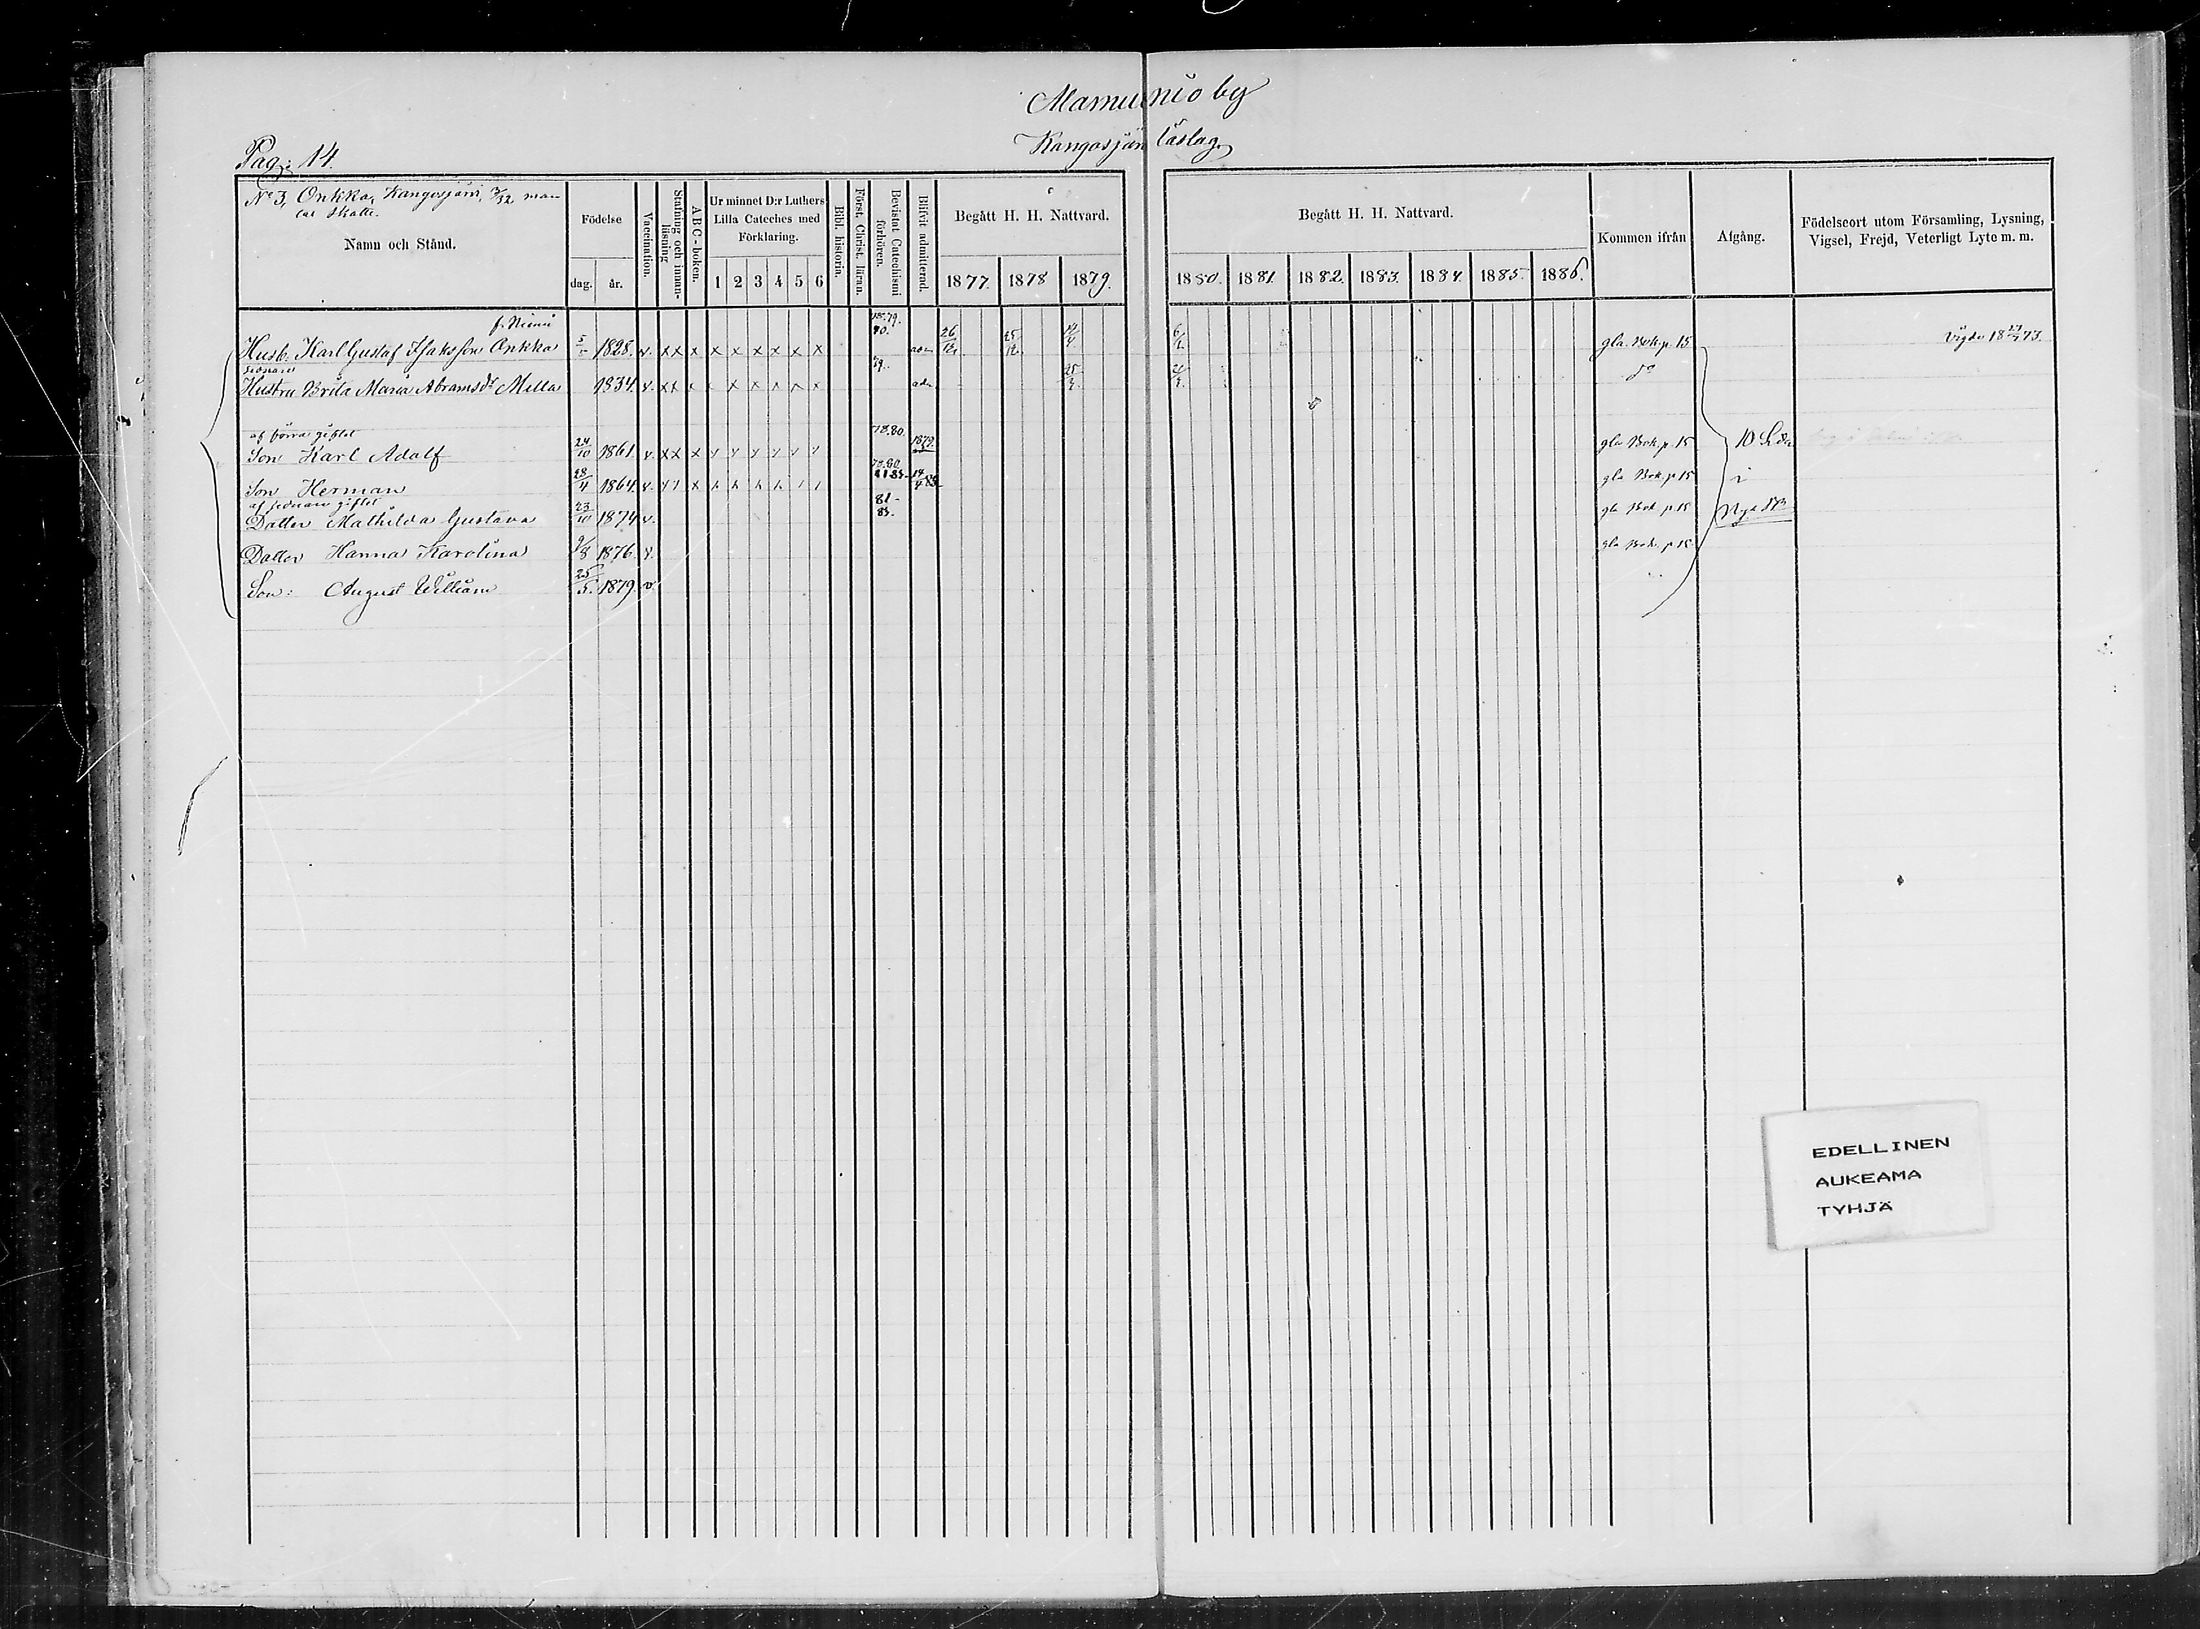 Mamunio by
Kangosjärvi läslag.
Pag: 14.
No 3, Onkka, Kangosjärvi, man
tal skatte.
Namn och Stånd.
Födelse
dag. år.
Vaccination.
Stafning och innanläsning
ABC-boken.
Ur minnet D:r Luthers
Lilla Cateches med
Förklaring.
1 2 3 4 5 6
Bibl. historia.
Först. Christ. läran.
Bevistat Catechismi förhören.
Blifvit admitterad.
Begått H. H. Nattvard.
1877. 1878 1879.
Begått H. H. Nattvard.
1880. 1881. 1882. 1883. 1884. 1885. 1886.
Kommen ifrån
Afgång.
Födelseort utom Församling, Lysning,
Vigsel, Frejd, Veterligt Lyte m. m.
f. Niemi 78.79.
Husb. Karl Gustaf Isaksson Onkka 1828. v. xx x x x x x x x 80. adm 26/12 25/12 14/4 gla. Bok p. 15 Vigde 18 73.
sednare 79.
Hustru Brita Maria Abramsdr Mella 1834. v. xx x x x x x x adm do
af förra giftet 78.80.
Son Karl Adolf 24/10 1861 v. xx x 1879. gla Bok p. 15 10 Sidn
78.80.
Son Herman 28/4 1864 v. 81 83. 14/4 83 gla Bok p 15 i
af sednare giftet 81-
Dotter Mathilda Gustava 23/10 1874 v. 83. gla Bok p 15 Nya KB
Dotter Hanna Karolina 9/8 1876. v. gla Bok. p 15
Son: August William 25/5. 1879. v
EDELLINEN
AUKEAMA
TYHJÄ